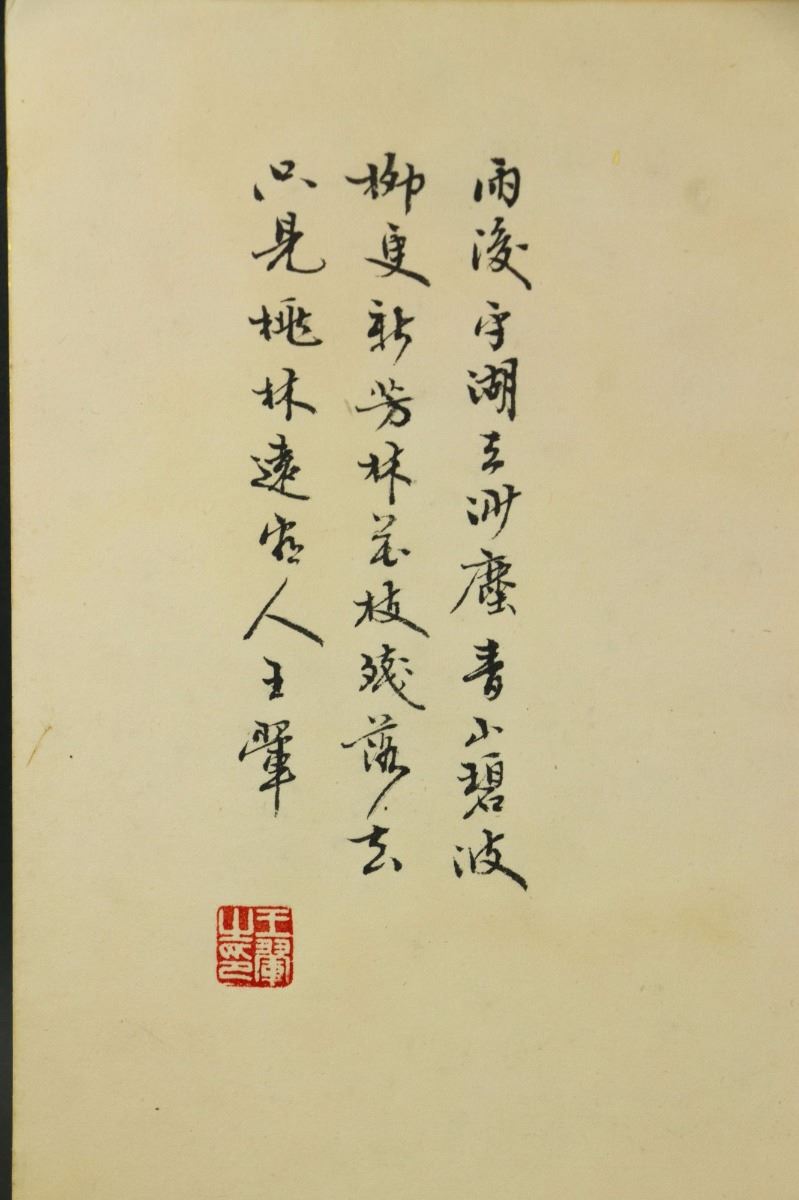 雨後平湖去沙塵青山碧波
柳更新芳林花枝殘落去
只見桃林遠客人王翬
王翬之印